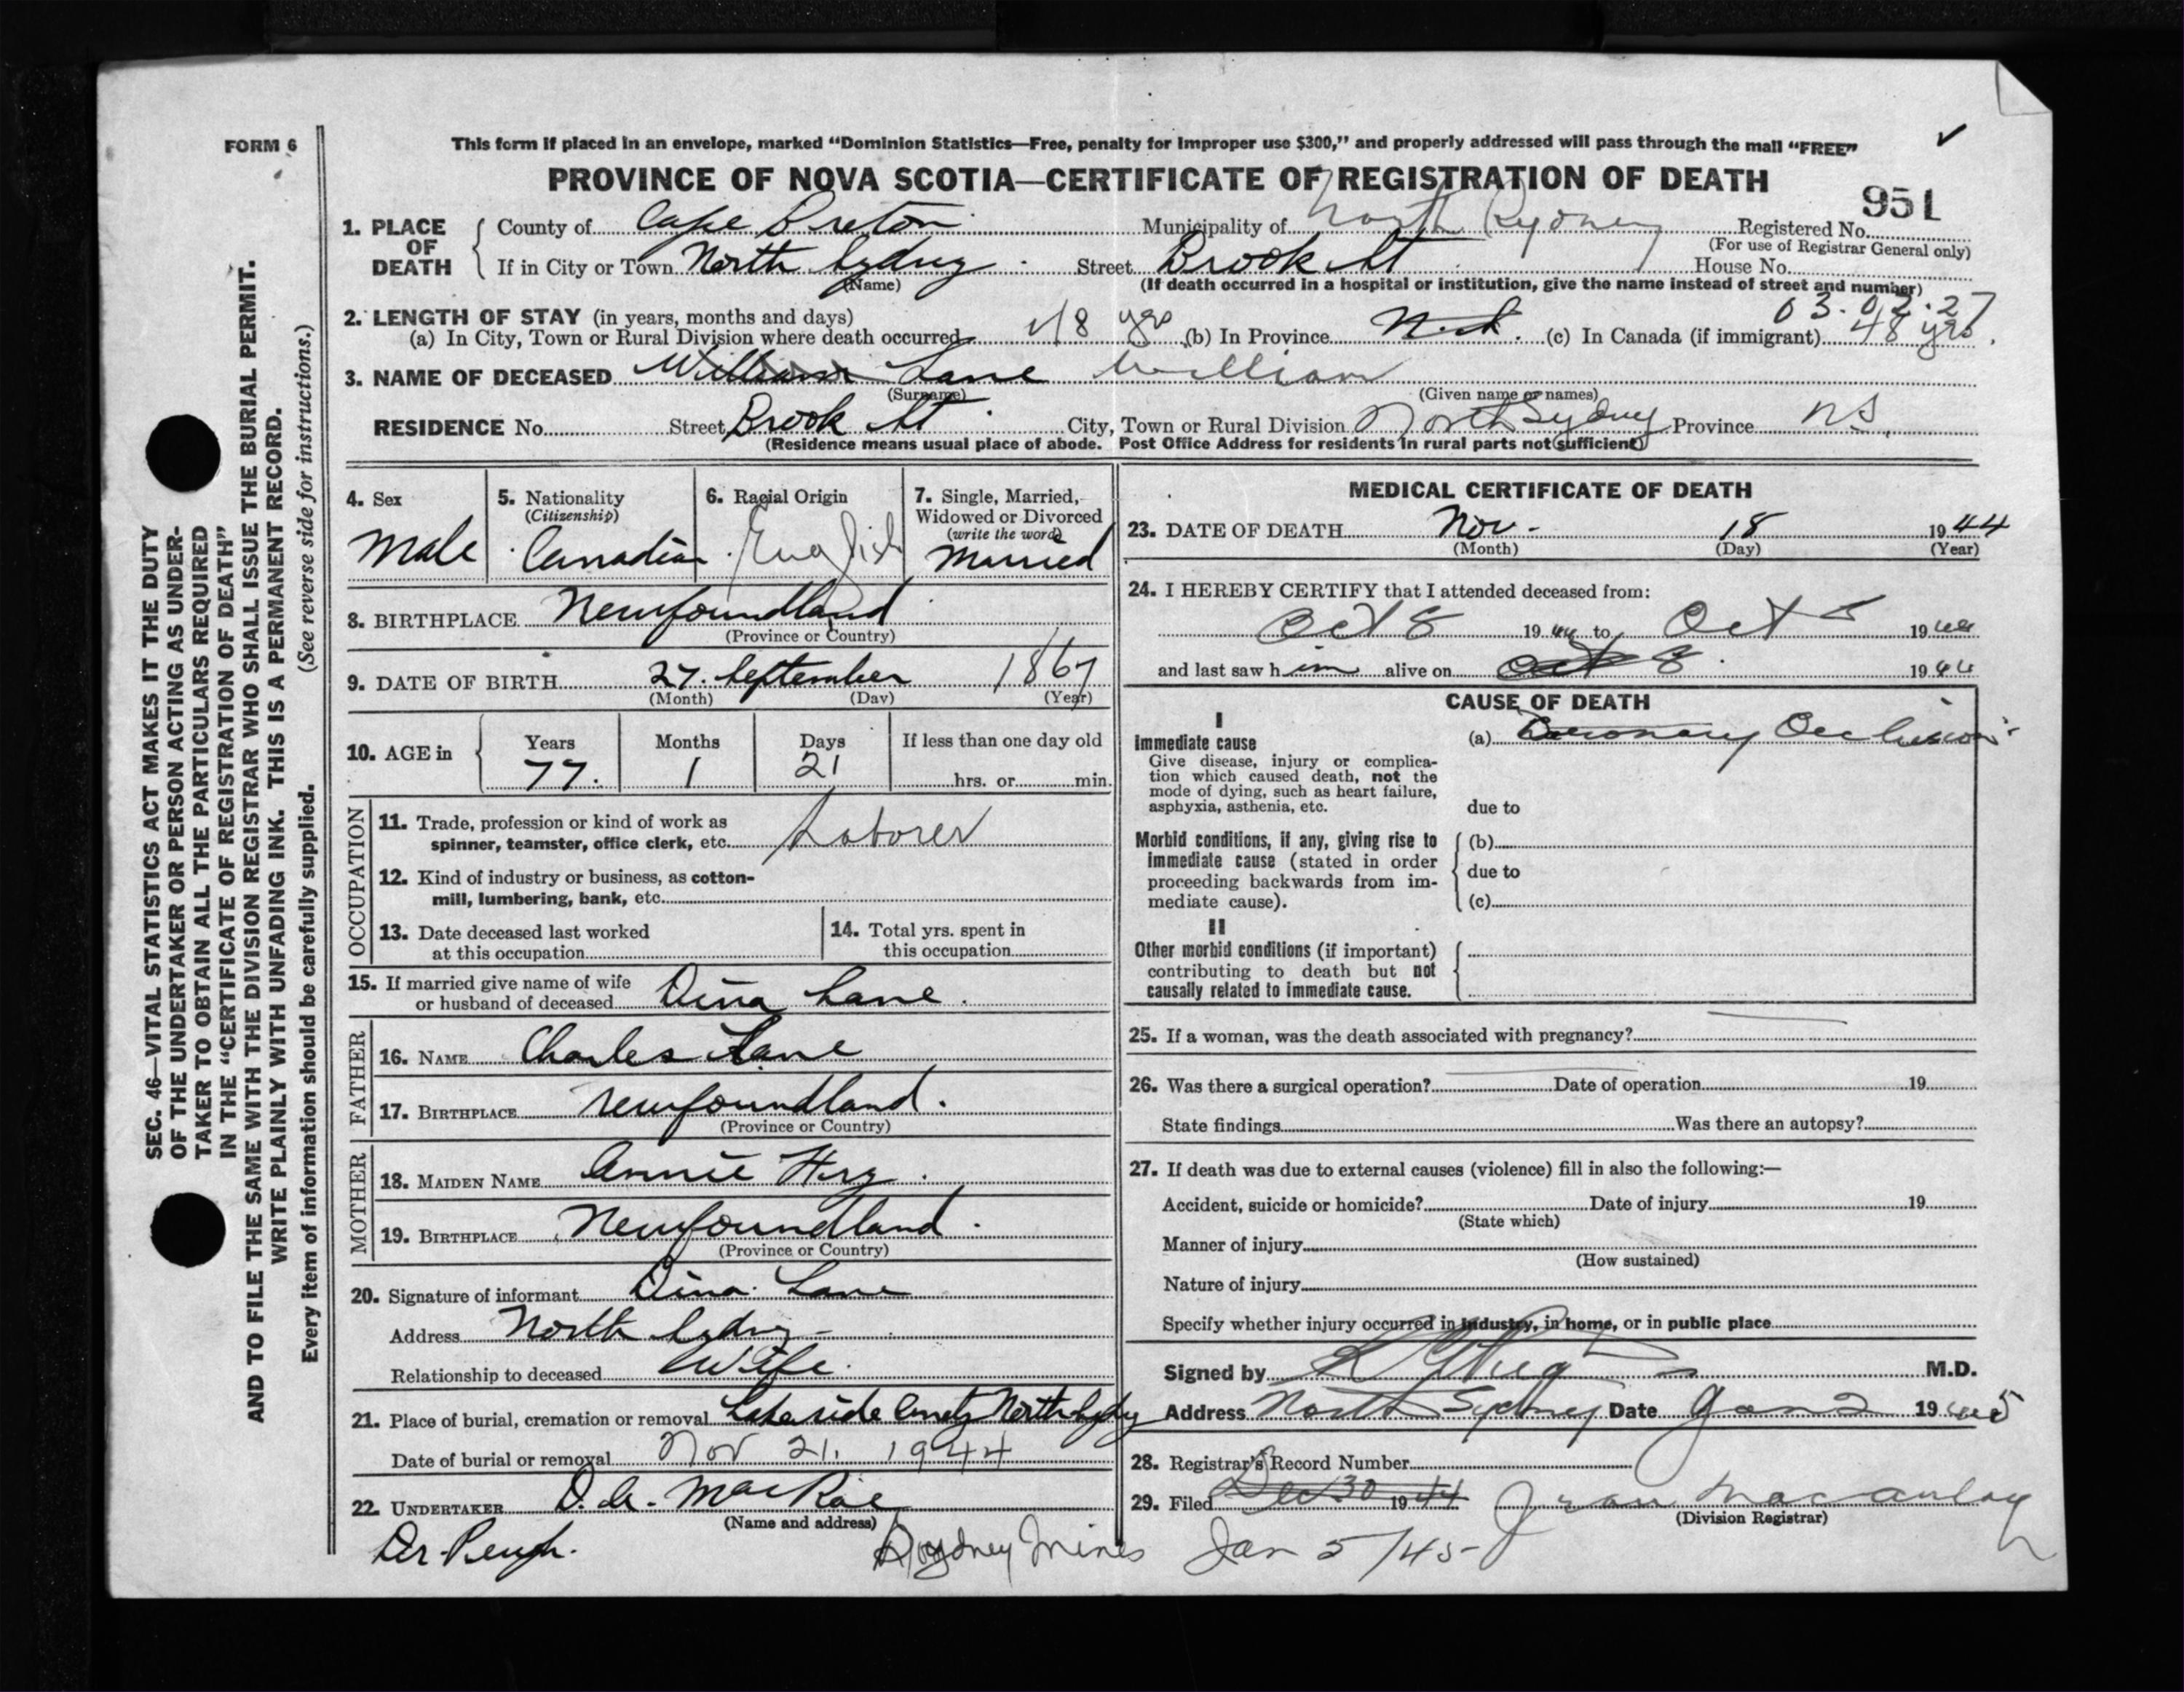 FORM 6
This form if placed in an envelope, marked “Dominion Statistics—Free, penalty for improper use $300,” and properly addressed will pass through the mail “FREE”
PROVINCE OF NOVA SCOTIA—CERTIFICATE OF REGISTRATION OF DEATH
951
1. PLACE OF DEATH
County of Cape Breton Municipality of North Sydney Registered No.
(For use of Registrar General only)
If in City or Town North Sydney Street Brook St House No.
(Name) (If death occurred in a hospital or institution, give the name instead of street and number)
03.02.27
2. LENGTH OF STAY (in years, months and days)
(a) In City, Town or Rural Division where death occurred 48 yrs (b) In Province N.S. (c) In Canada (if immigrant) 48 yrs.
3. NAME OF DECEASED William Lane William
(Surname) (Given name or names)
RESIDENCE No. Street Brook St City, Town or Rural Division North Sydney Province N.S.
(Residence means usual place of abode. Post Office Address for residents in rural parts not sufficient)
4. Sex
Male
5. Nationality
(Citizenship)
Canadian
6. Racial Origin
English
7. Single, Married, Widowed or Divorced
(write the word)
Married
8. BIRTHPLACE Newfoundland
(Province or Country)
9. DATE OF BIRTH 27. September 1867
(Month) (Day) (Year)
10. AGE in
Years Months Days If less than one day old
77. 1 21 hrs. or min.
OCCUPATION
11. Trade, profession or kind of work as
spinner, teamster, office clerk, etc. Laborer
12. Kind of industry or business, as cotton-
mill, lumbering, bank, etc.
13. Date deceased last worked
at this occupation
14. Total yrs. spent in
this occupation
15. If married give name of wife
or husband of deceased Dina Lane.
FATHER
16. NAME Charles Lane
17. BIRTHPLACE Newfoundland.
(Province or Country)
MOTHER
18. MAIDEN NAME Annie
19. BIRTHPLACE Newfoundland.
(Province or Country)
20. Signature of informant Dina Lane
Address North Sydney
Relationship to deceased Wife.
21. Place of burial, cremation or removal Lakeside Cmety North Sydney
Date of burial or removal Nov 21. 1944
22. UNDERTAKER D. A. MacRae
(Name and address)
Sydney Mines
Dr. Peugh.
MEDICAL CERTIFICATE OF DEATH
23. DATE OF DEATH Nov. 18 1944
(Month) (Day) (Year)
24. I HEREBY CERTIFY that I attended deceased from:
Oct 8 1944 to Oct 8 1944
and last saw him alive on Oct 8. 1944
CAUSE OF DEATH
I
Immediate cause
Give disease, injury or complica-
tion which caused death, not the
mode of dying, such as heart failure,
asphyxia, asthenia, etc.
(a) Coronary Occlusion
due to
Morbid conditions, if any, giving rise to
immediate cause (stated in order
proceeding backwards from im-
mediate cause).
(b)
due to
(c)
II
Other morbid conditions (if important)
contributing to death but not
causally related to immediate cause.
25. If a woman, was the death associated with pregnancy?
26. Was there a surgical operation? Date of operation 19
State findings Was there an autopsy?
27. If death was due to external causes (violence) fill in also the following:—
Accident, suicide or homicide? Date of injury 19
(State which)
Manner of injury
(How sustained)
Nature of injury
Specify whether injury occurred in industry, in home, or in public place
Signed by M.D.
Address North Sydney Date Jan 2 1945
28. Registrar's Record Number
29. Filed Dec 30 1944 Jean Macaulay
(Division Registrar)
Jan 5/45
SEC. 46—VITAL STATISTICS ACT MAKES IT THE DUTY
OF THE UNDERTAKER OR PERSON ACTING AS UNDER-
TAKER TO OBTAIN ALL THE PARTICULARS REQUIRED
IN THE “CERTIFICATE OF REGISTRATION OF DEATH”
AND TO FILE THE SAME WITH THE DIVISION REGISTRAR WHO SHALL ISSUE THE BURIAL PERMIT.
WRITE PLAINLY WITH UNFADING INK. THIS IS A PERMANENT RECORD.
Every item of information should be carefully supplied. (See reverse side for instructions.)